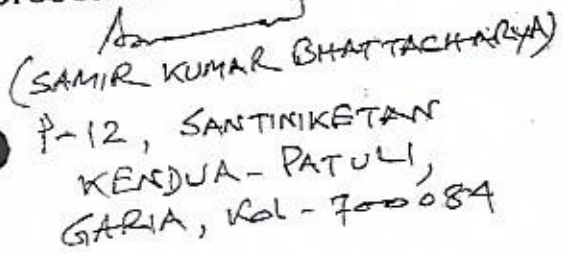 (SAMIR KUMAR BHATTACHARYA)
P-12, SANTINIKETAN
KENDUA - PATULI,
GARIA, Kol - 700084